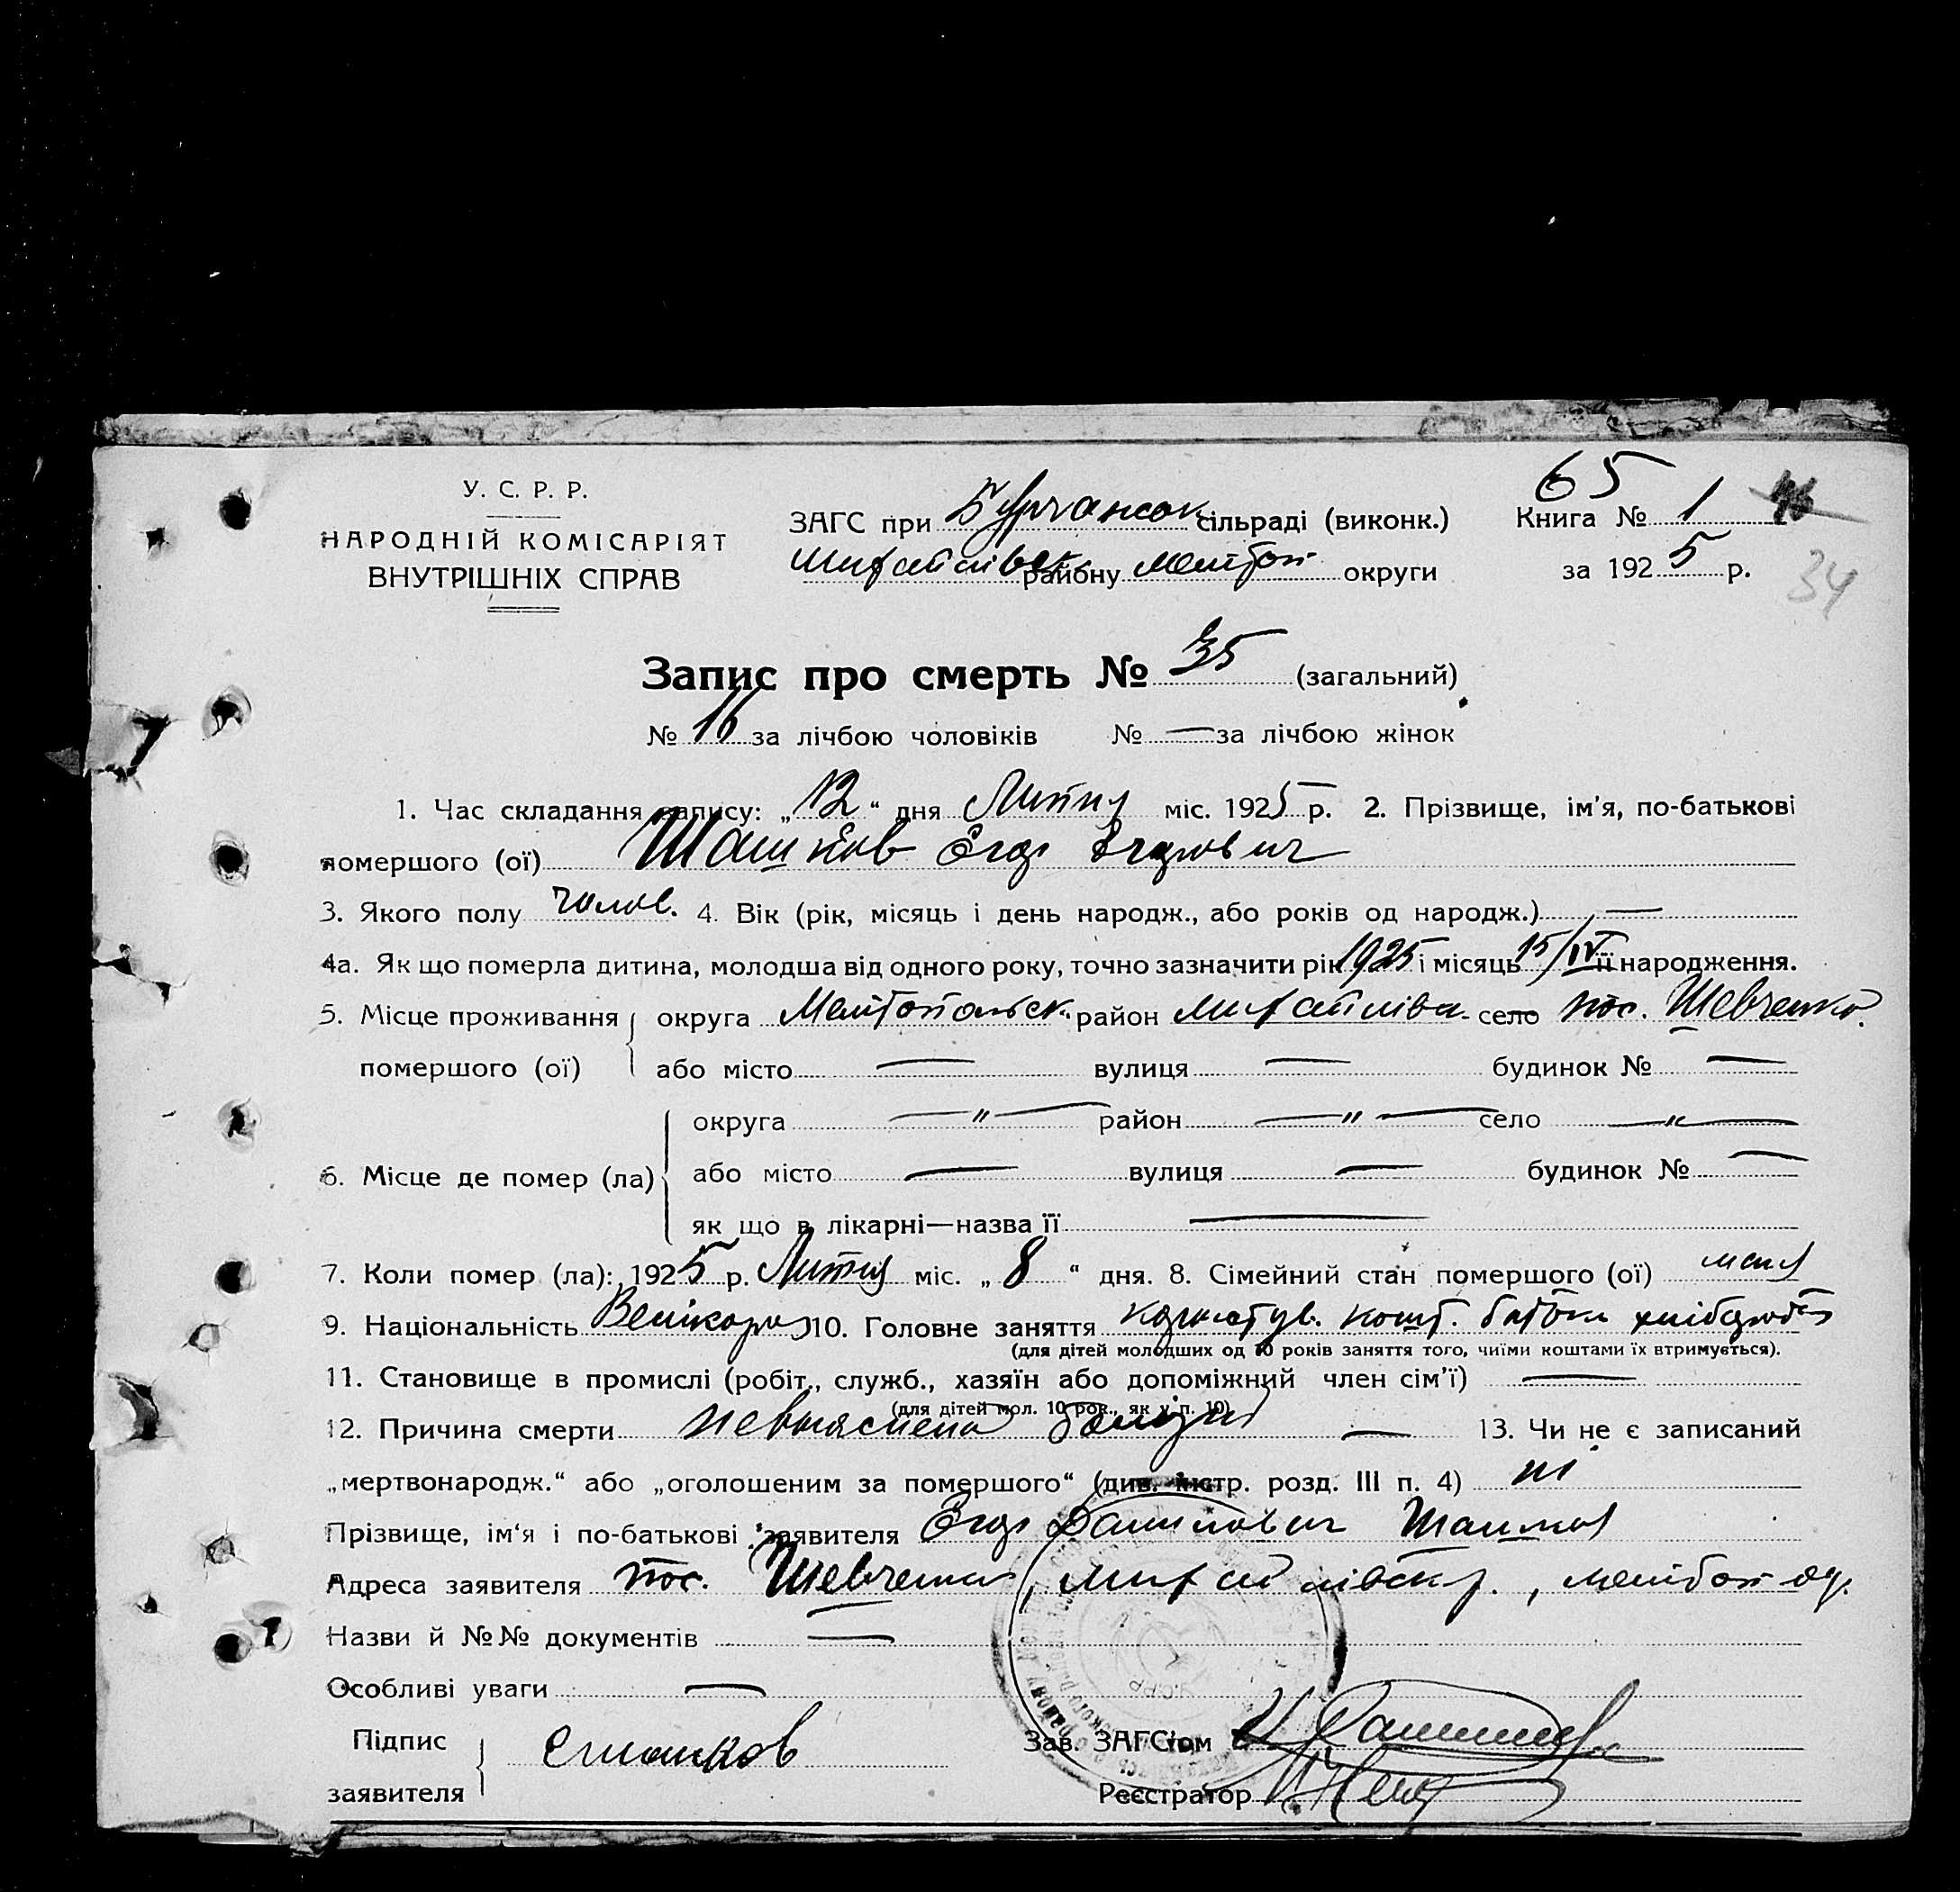 У. С. Р. Р.
НАРОДНІЙ КОМІСАРІЯТ
ВНУТРІШНІХ СПРАВ
ЗАГС при Бурчанськ сільраді (виконк.)
Михайлівськ району Меліtoп округи
65
Книга № 1
за 1925 р.
34
Запис про смерть № 35 (загальний)
№ 16 за лічбою чоловіків № — за лічбою жінок
1. Час складання запису: „12“ дня Липня міс. 1925 р. 2. Прізвище, ім'я, по-батькові
помершого (ої) Шашков Єгор Єгорович
3. Якого полу чолов. 4. Вік (рік, місяць і день народж., або років од народж.) —
4а. Як що померла дитина, молодша від одного року, точно зазначити рік 1925 і місяць 15/IV її народження.
5. Місце проживання помершого (ої) округа Мелітопольськ. район Михайлівск. село пос. Шевченко.
або місто — вулиця — будинок № —
6. Місце де помер (ла) округа — " — район — " — село — " —
або місто — вулиця — будинок № —
як що в лікарні—назва її —
7. Коли помер (ла): 1925 р. Липня міс. „8“ дня. 8. Сімейний стан помершого (ої)
9. Національність Великорос 10. Головне заняття користув. кошт. батька хлібороба
(для дітей молодших од 10 років заняття того, чиїми коштами їх втримується).
11. Становище в промислі (робіт., служб., хазяїн або допоміжний член сім'ї) —
(для дітей мол. 10 рок., як у п. 10)
12. Причина смерти невияснена болізнь — 13. Чи не є записаний
„мертвонародж.“ або „оголошеним за помершого“ (див. інстр. розд. III п. 4) ні
Прізвище, ім‘я і по-батькові заявителя Єгор Данилович Шашков
Адреса заявителя пос. Шевченко, Михайлівськ р., Мелітоп ок.
Назви й №№ документів —
Особливі уваги —
Підпис заявителя Єшашков
Зав. ЗАГС'ом
Реєстратор